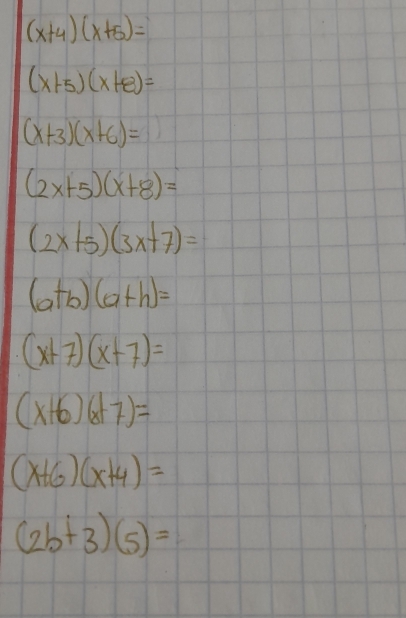 (x+4)(x+5)=
(x+5)(x+8)=
(x+3)(x+6)=
(2x+5)(x+8)=
(2x+5)(3x+7)=
(a+b)(a+h)=
(x+7)(x+7)=
(x+6)(x+7)=
(x+6)(x+4)=
(2b+3)(5)=